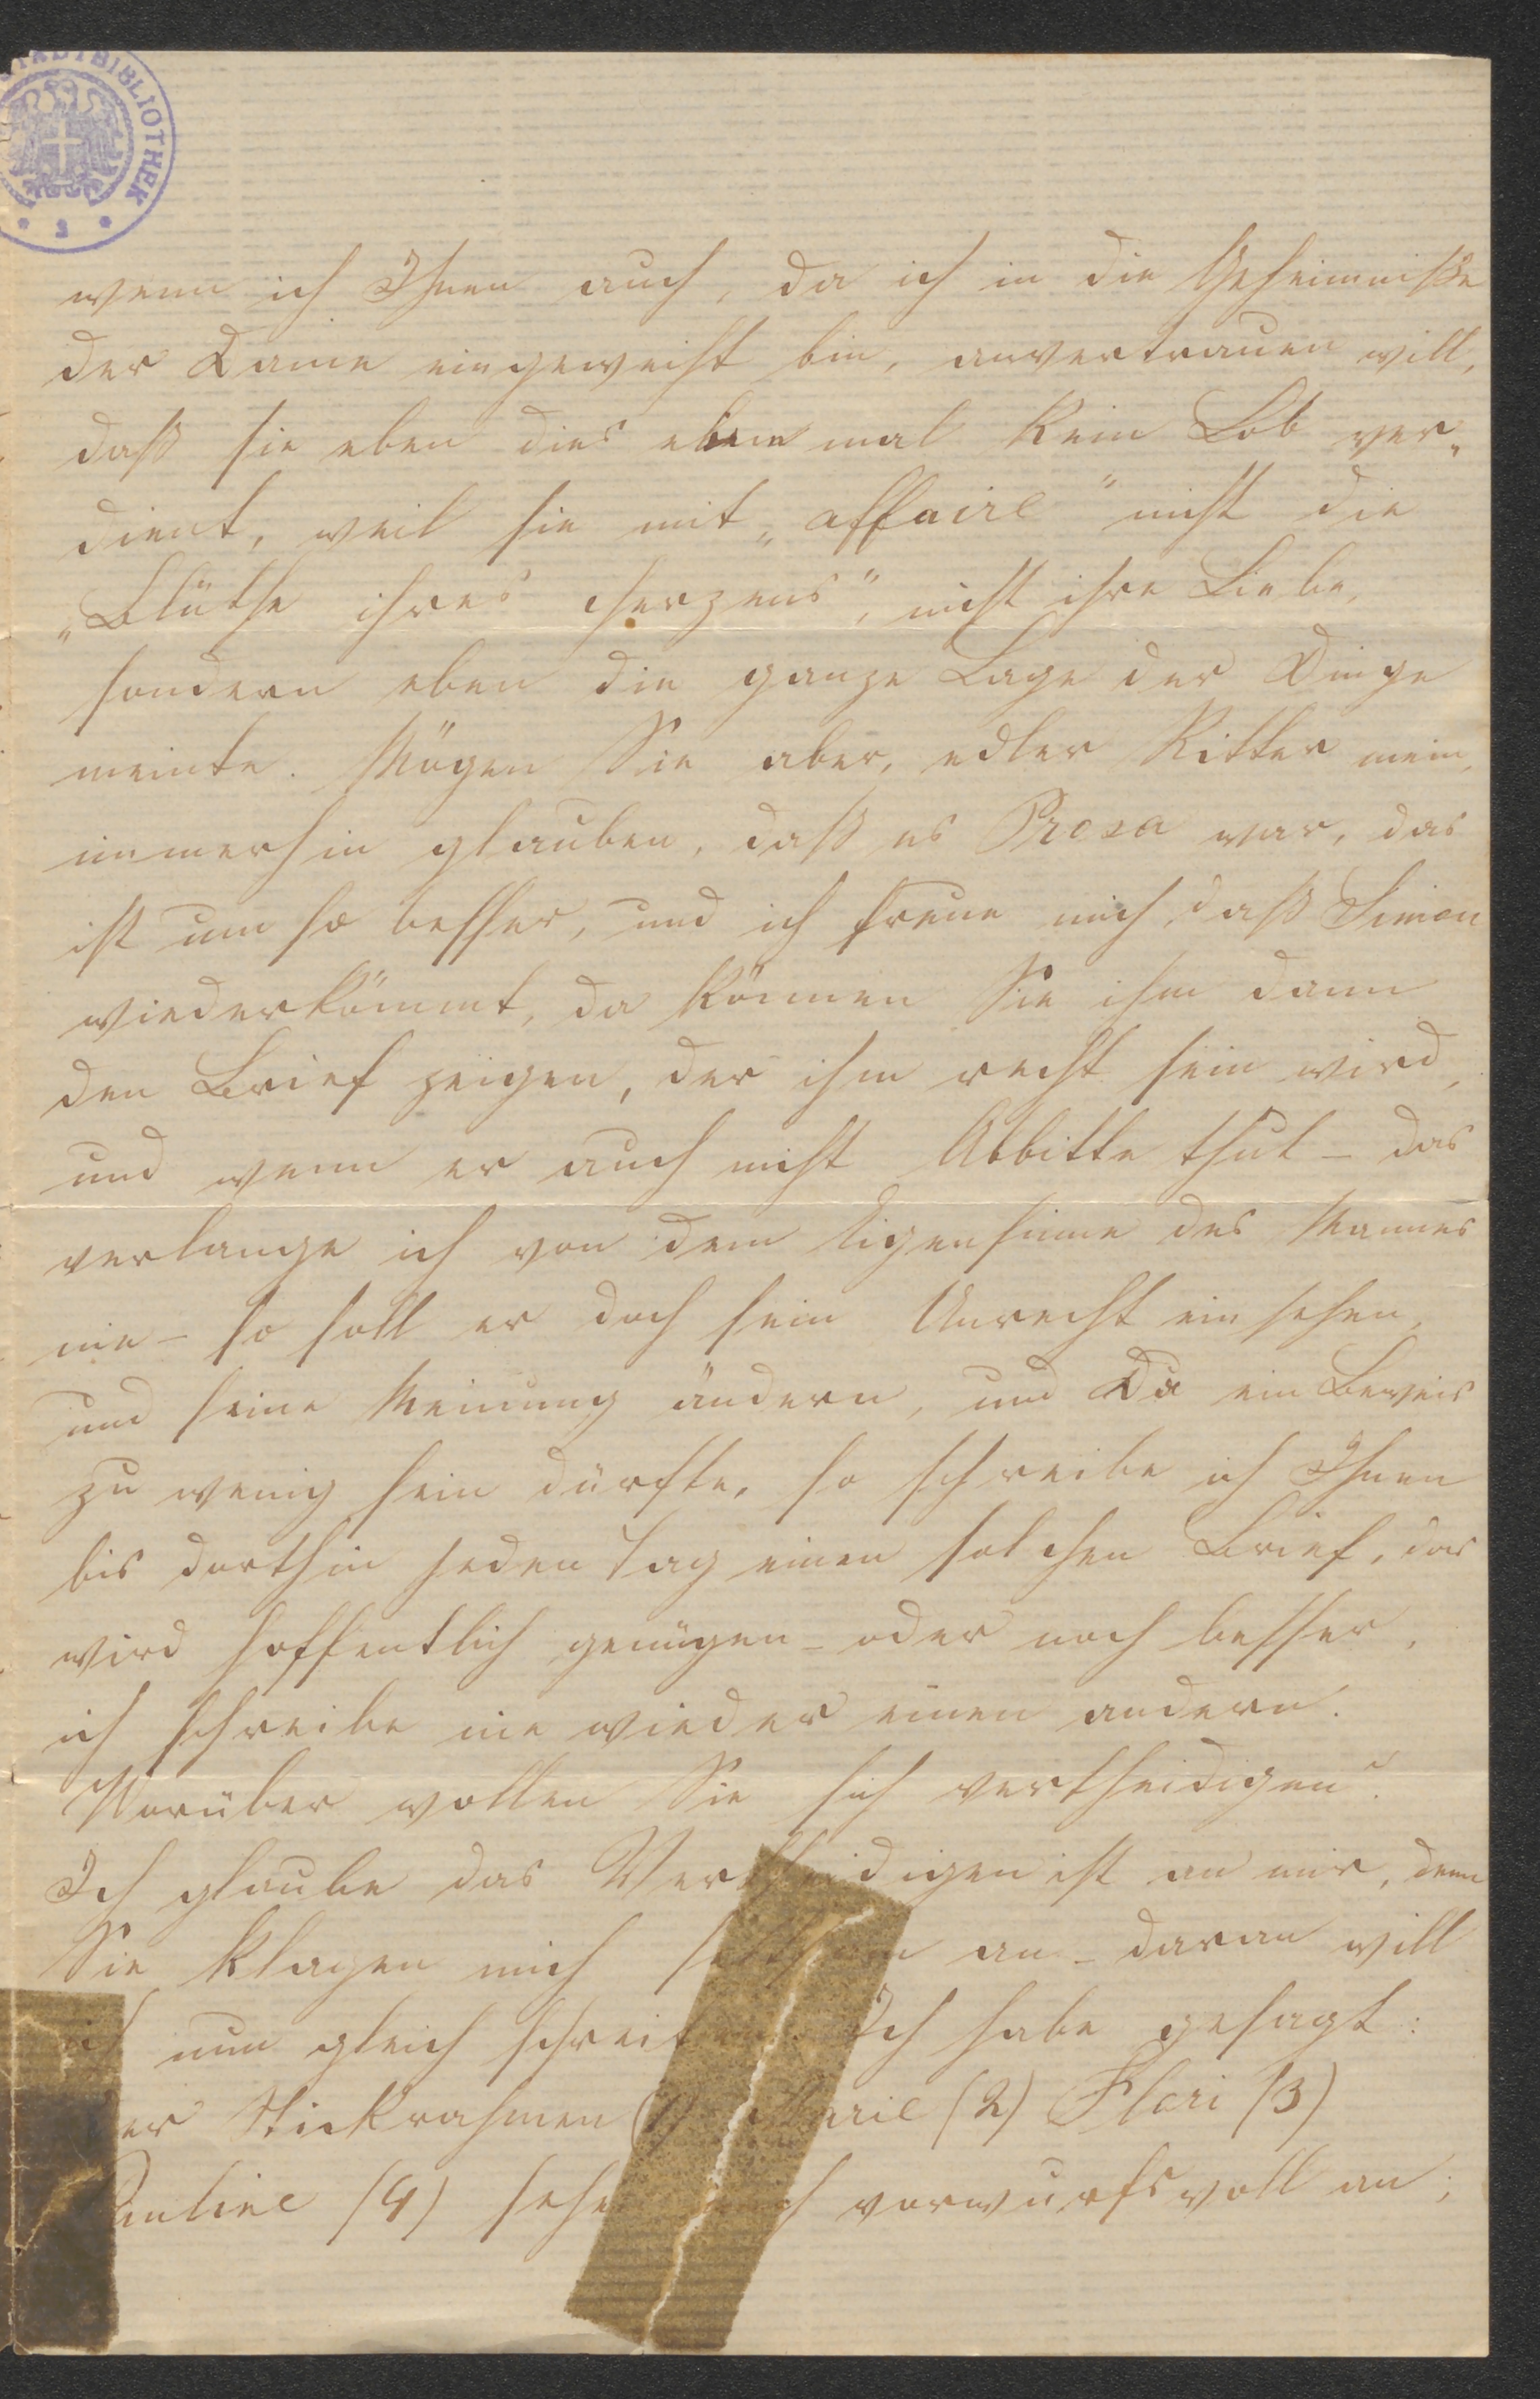 STADTBIBLIOTHEK
wenn ich Ihnen auch, da ich in die Geheimniße
der Dame eingeweiht bin, anvertrauen will,
daß sie eben dies eben mal kein Lob ver-
dient, weil sie mit „affaire" nicht die
„Blüthe ihres Herzens", nicht ihre Liebe,
sondern eben die ganze Lage der Dinge
meinte. Mögen Sie aber, edler Ritter mein,
immerhin glauben, daß es Prosa war, das
ist um so besser, und ich freue mich, daß Simon
wiederkömmt, da können Sie ihm dann
den Brief zeigen, der ihm recht sein wird,
und wenn er auch nicht Abbitte thut - das
verlange ich von dem Eigensinne des Mannes
nie - so soll er doch sein Unrecht einsehen,
und seine Meinung ändern, und Da ein Beweis
zu wenig sein dürfte, so schreibe ich Ihnen
bis dorthin jeden Tag einen solchen Brief, das
wird hoffentlich genügen - oder noch besser,
ich schreibe nie wieder einen andern.
Worüber wollen Sie sich vertheidigen?
Ich glaube das Vertheidigen ist an mir, denn
Sie klagen mich an - daran will
ich nun gleich schreiten. Ich habe gesagt:
Der Stickrahmen (1) Marie (2) Flori (3)
Pauline (4) sehen mich vorwurfsvoll an;